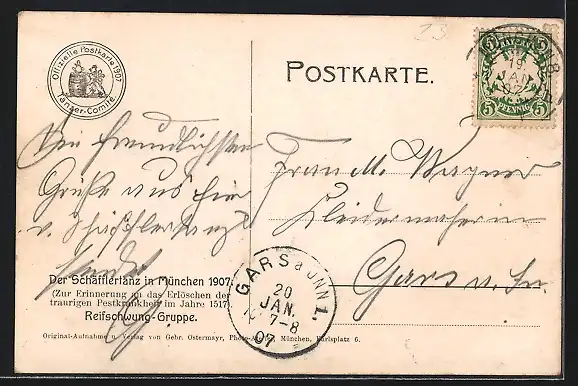 23
Offizielle Postkarte 1907
Tänzer-Comité
POSTKARTE.
BAYERN
5 5
5 PFENNIG 5
8
19
JAN
07
Die freundlichsten
Grüße aus hier
v. Schäfflertanz
sendet
Frau M. Wagner
Kleidermacherin
Gars a. Inn
Der Schäfflertanz in München 1907.
(Zur Erinnerung an das Erlöschen der
traurigen Pestkrankheit im Jahre 1517).
Reifschwung-Gruppe.
Original-Aufnahme u. Verlag von Gebr. Ostermayr, München, Karlsplatz 6.
GARS a. INN 1.
20
JAN.
7-8
07